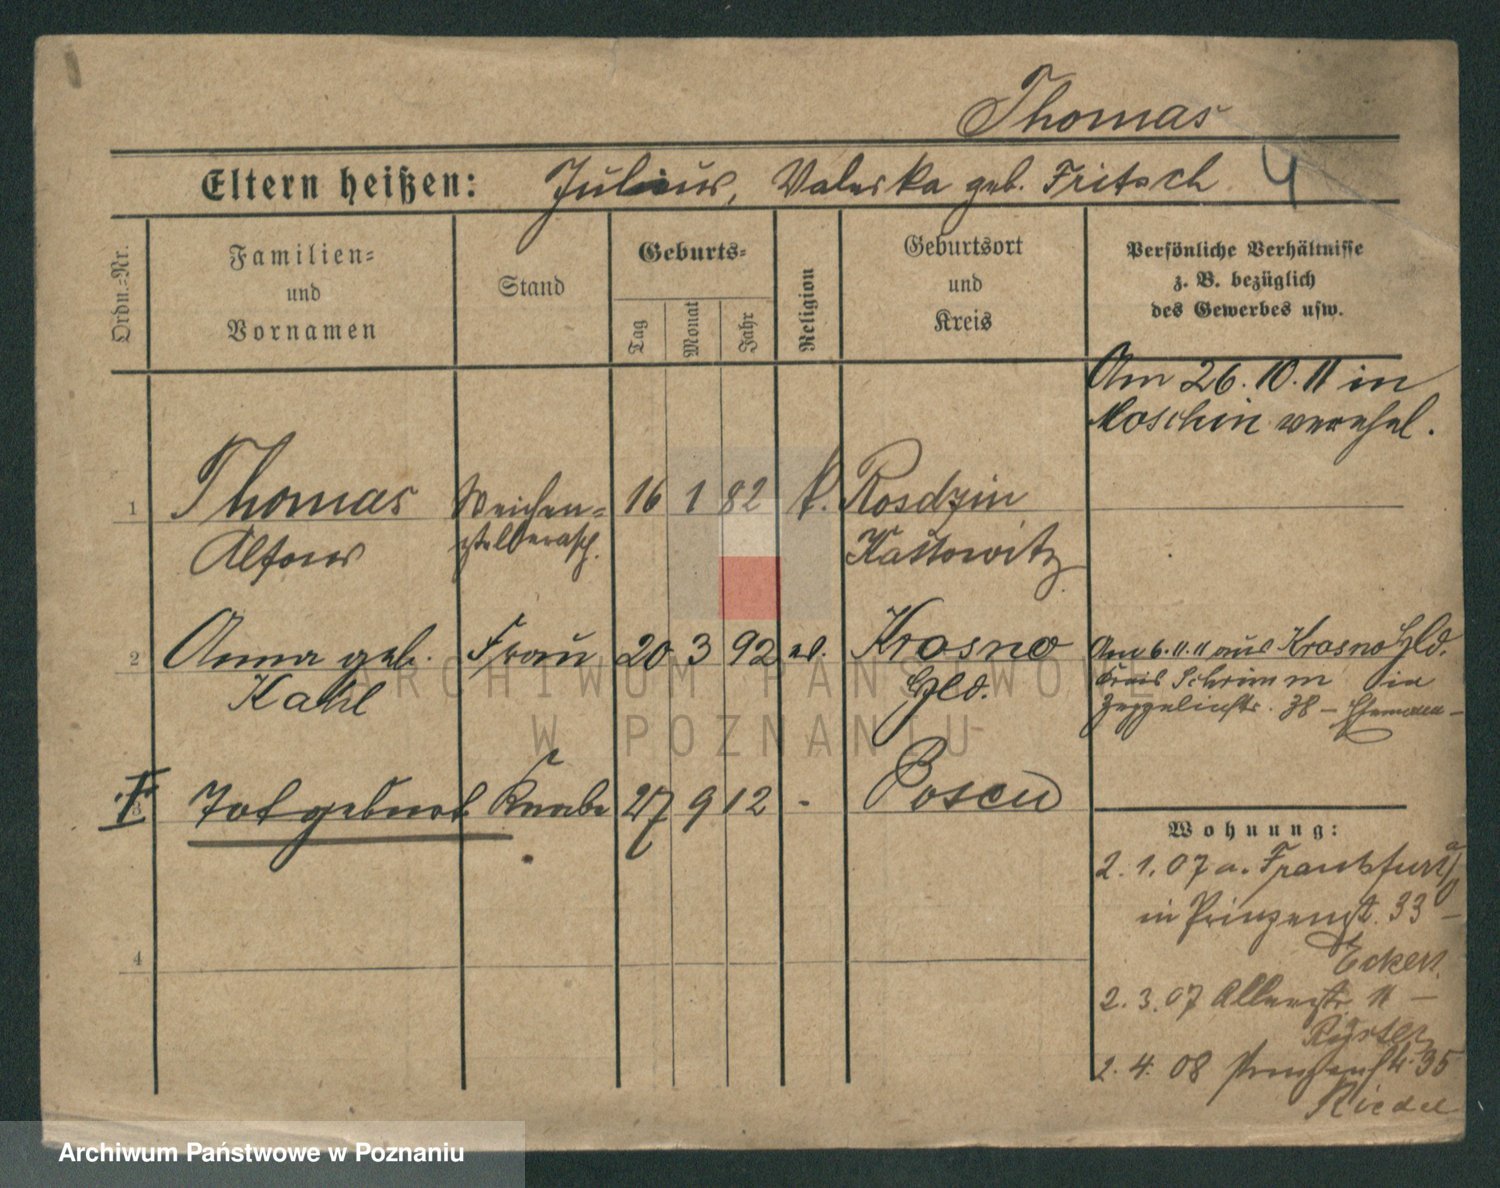 Thomas
Eltern heißen: Julius, Valeska geb. Fritsch
4
Ordn.-Nr.
Familien-
und
Vornamen
Stand
Geburts-
Tag
Monat
Jahr
Religion
Geburtsort
und
Kreis
Persönliche Verhältnisse
z. B. bezüglich
des Gewerbes usw.
Am 26.10.11 in
Moschin verehel.
1 Thomas Weichen- 16 1 82 k. Rosdzin
Alfons Kattowitz
2 Anna geb. Frau 20 3 92 ev. Krosno
Kahl Hld.
Am 6.11.11 aus Krosno Hld.
Kreis Schrimm in
Zeppelinstr. 38 - Ehemann -
Totgeburt Knabe 27 9 12 - Posen
Wohnung:
2.1.07 a. Frankfurt a/O
in Prinzenst. 33 -
Eckert.
2.3.07 11 -
4
2.4.08 35
Riedel
ARCHIWUM PAŃSTWOWE
W POZNANIU
Archiwum Państwowe w Poznaniu